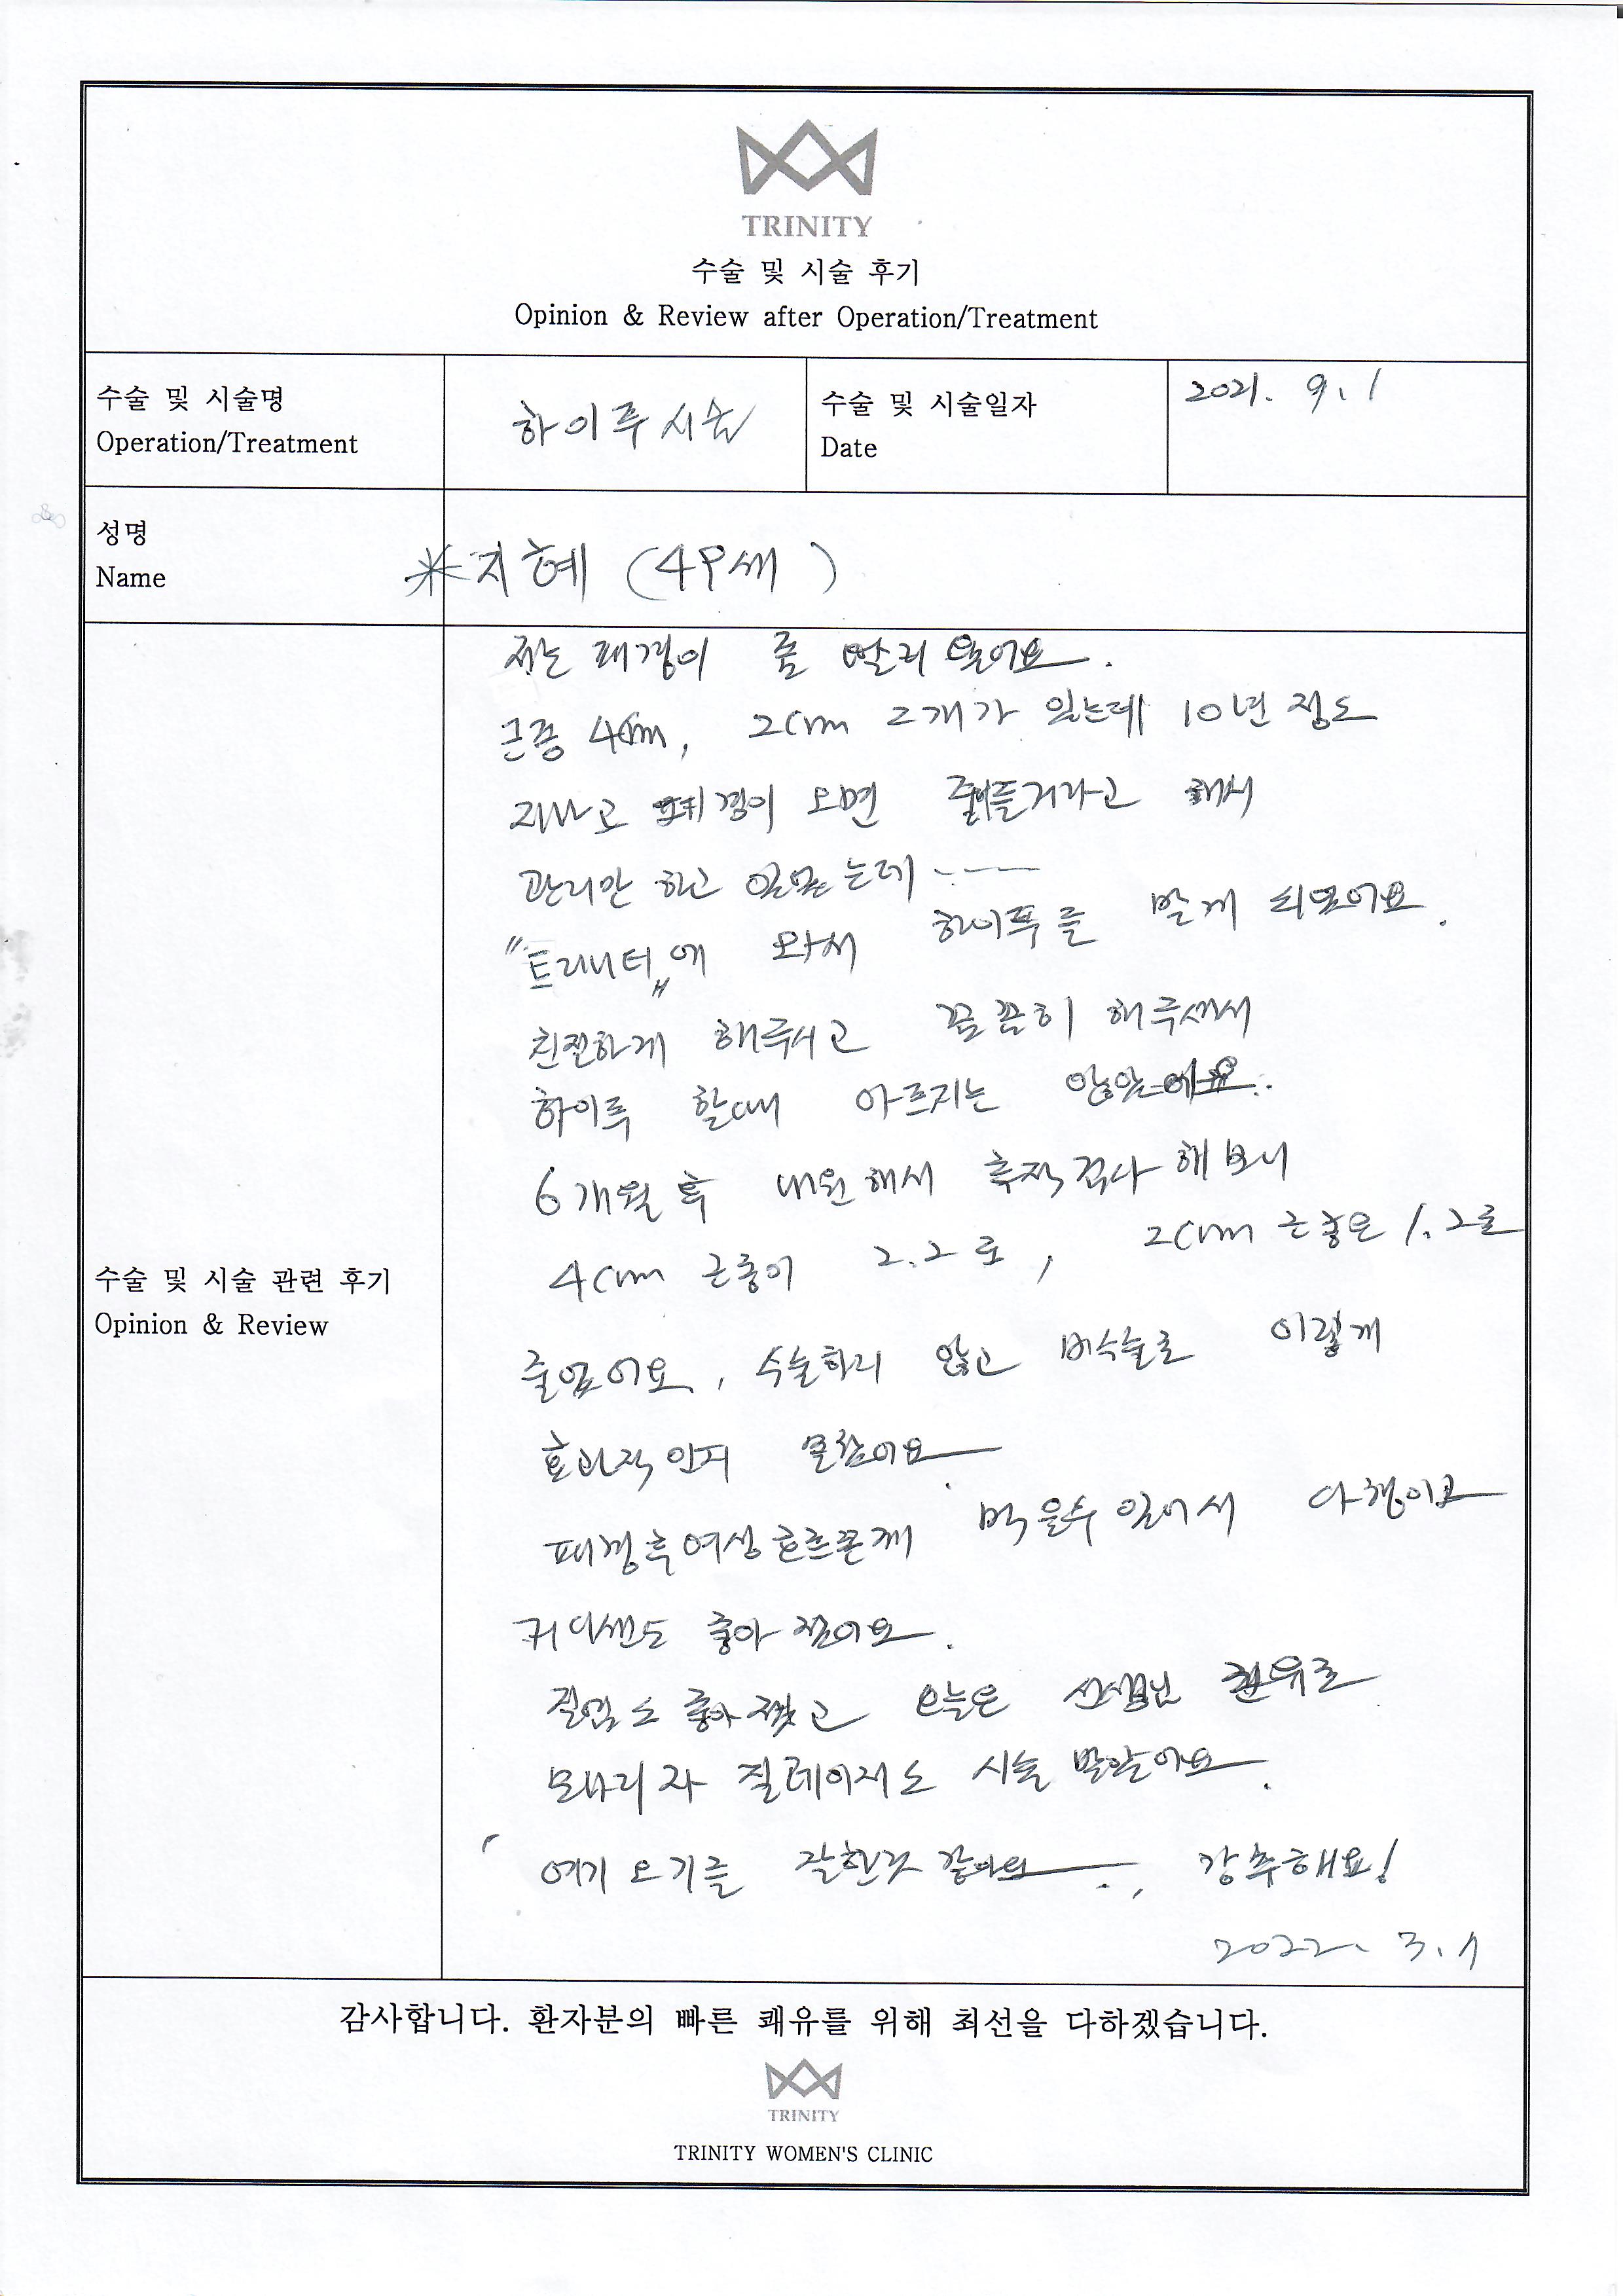 TRINITY
수술 및 시술 후기
Opinion & Review after Operation/Treatment
수술 및 시술명
Operation/Treatment
하이푸 시술
수술 및 시술일자
Date
2021. 9. 1
성명
Name
*지혜 (49세)
수술 및 시술 관련 후기
Opinion & Review
저는 폐경이 좀 빨리 왔어요.
근종 4cm, 2cm 2개가 있는데 10년 정도
지나고 폐경이 오면 줄어들거라고 해서
관리만 하고 있었는데
"트리니티"에 와서 하이푸를 받게 되었어요.
친절하게 해주시고 꼼꼼히 해주셔서
하이푸 할때 아프지는 않았어요.
6개월 후 내원해서 추적검사 해보니
4cm 근종이 2.2로, 2cm 근종은 1.2로
줄었어요, 수술하지 않고 비수술로 이렇게
효과적인지 몰랐어요.
폐경후 여성호르몬제 먹을수 있어서 다행이고
컨디션도 좋아졌어요.
질염도 좋아졌고 오늘은 선생님 권유로
모나리자 질레이저도 시술 받았어요.
여기 오기를 잘한것 같아요., 강추해요!
2022. 3. 1
감사합니다. 환자분의 빠른 쾌유를 위해 최선을 다하겠습니다.
TRINITY
TRINITY WOMEN'S CLINIC